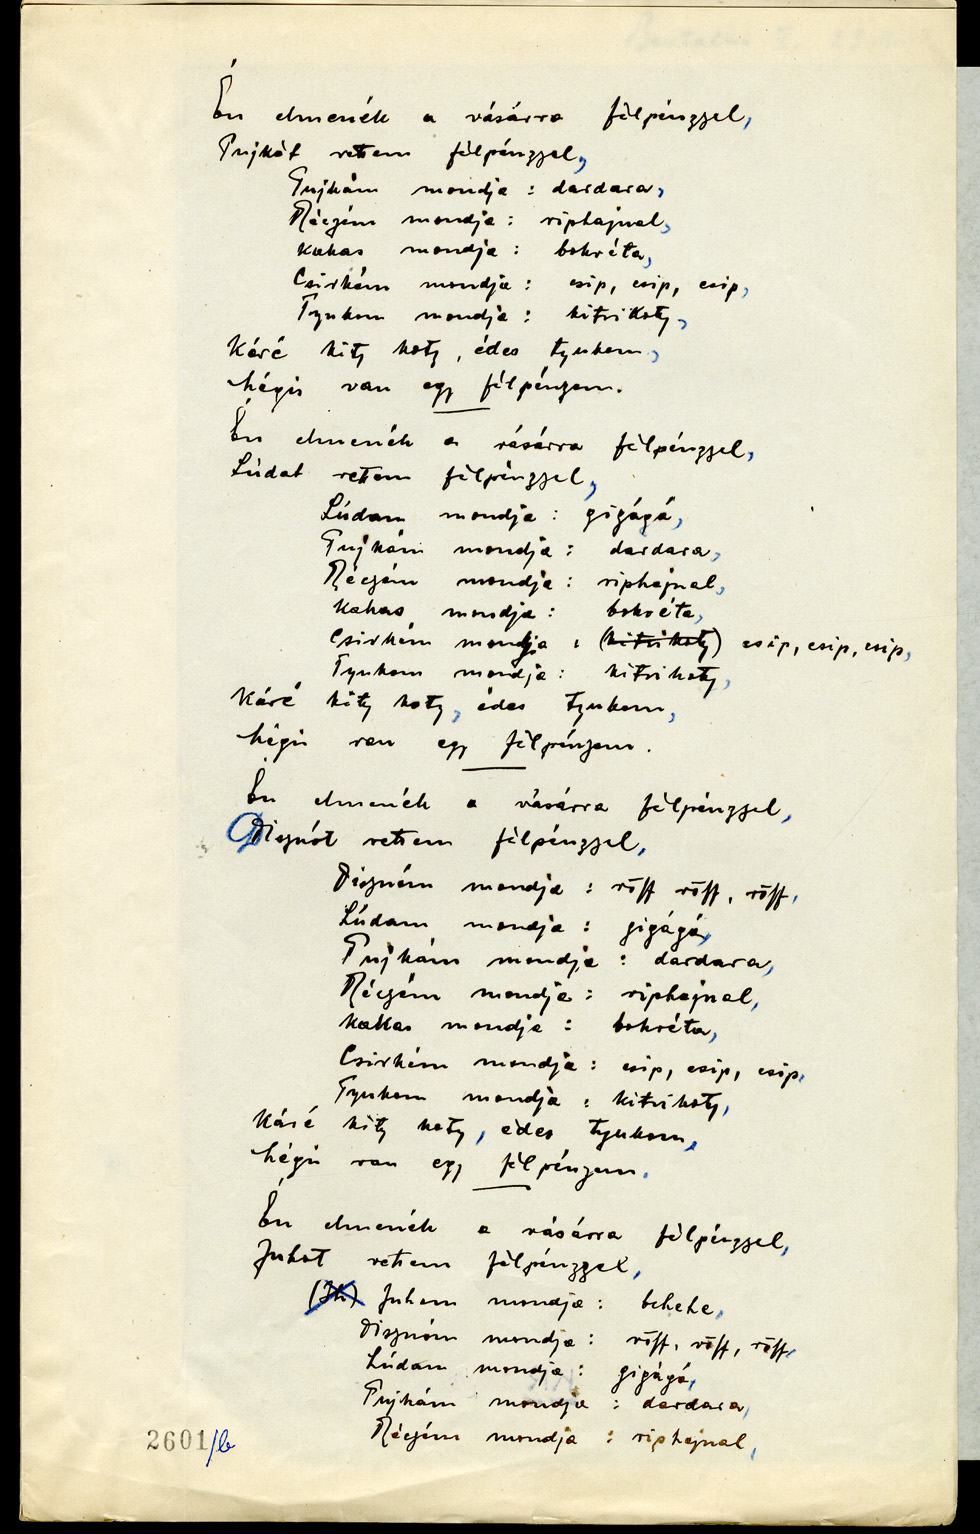 Én elmenék a vásárra félpénzzel,
Pujkát vettem félpénzzel,
Pujkám mondja : dardara,
Réczém mondja : riphajnal,
Kakas mondja : bokréta,
Csirkém mondja : csip, csip, csip,
Tyukom mondja : kitrikoty,
Káré kity koty, édes tyukom,
Mégis van egy félpénzem.
Én elmenék a vásárra félpénzzel,
Ludat vettem félpénzzel,
Lúdam mondja : gigágá,
Pujkám mondja : dardara,
Réczém mondja : riphajnal,
Kakas mondja : bokréta,
Csirkém mondja : (kitrikoty) csip, csip, csip,
Tyukom mondja : kitrikoty,
Káré kity koty, édes tyukom,
Mégis van egy félpénzem.
Én elmenék a vásárra félpénzzel,
Disznót vettem félpénzzel,
Disznóm mondja : röff röff, röff,
Lúdam mondja : gigágá,
Pujkám mondja : dardara,
Réczém mondja : riphajnal,
Kakas mondja : bokréta,
Csirkém mondja : csip, csip, csip,
Tyukom mondja : kitrikoty,
Káré kity koty, édes tyukom,
Mégis van egy félpénzem.
Én elmenék a vásárra félpénzzel,
Juhot vettem félpénzzel,
Juhom mondja : behehe,
Disznóm mondja : röff, röff, röff,
Lúdam mondja : gigágá,
Pujkám mondja : dardara,
Réczém mondja : riphajnal,
2601/b